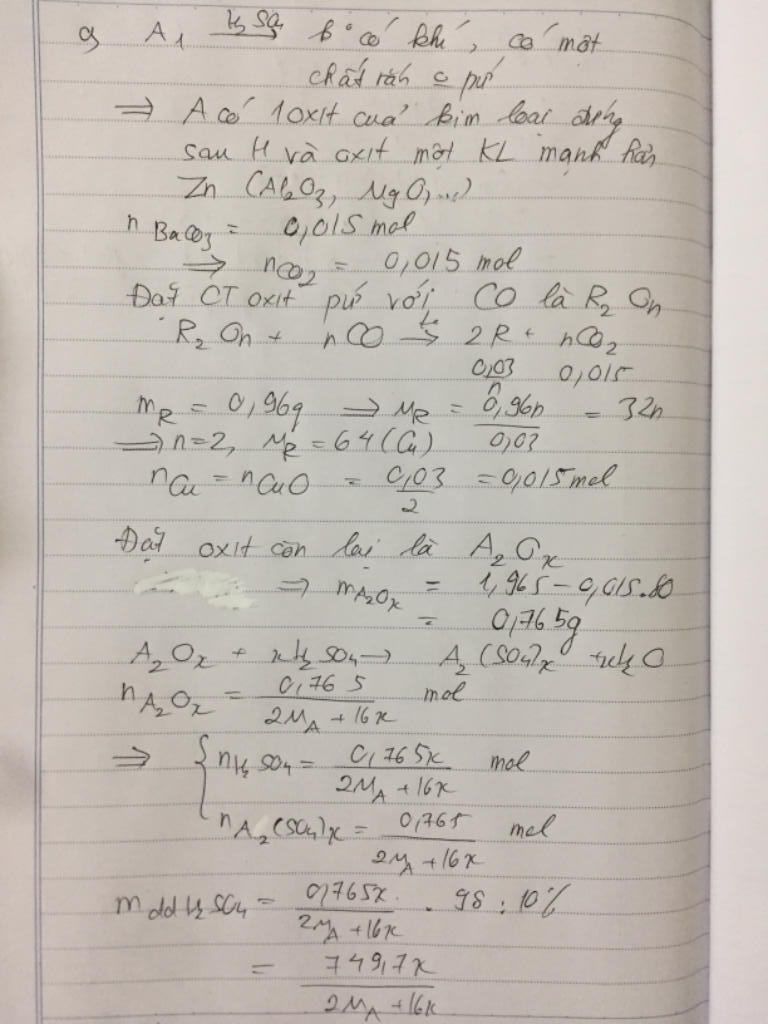 a) A₁ →(H₂SO₄) k° có khí, có một
chất rắn c pứ
⇒ A có 1 oxit của kim loại đứng
sau H và oxit một KL mạnh hơn
Zn (Al₂O₃, MgO,...)
n BaCO₃ = 0,015 mol
⇒ nCO₂ = 0,015 mol
Đặt CT oxit pứ với CO là R₂On
R₂On + nCO →(t°) 2R + nCO₂
0,03/n 0,015
mR = 0,96g ⇒ MR = 0,96n/0,03 = 32n
⇒ n=2, MR = 64 (Cu)
nCu = nCuO = 0,03/2 = 0,015 mol
Đặt oxit còn lại là A₂Ox
⇒ mA₂Ox = 1,965 - 0,015.80
= 0,765g
A₂Ox + xH₂SO₄ → A₂(SO₄)x + xH₂O
nA₂Ox = 0,765/(2MA + 16x) mol
⇒ { nH₂SO₄ = 0,765x/(2MA + 16x) mol
nA₂(SO₄)x = 0,765/(2MA + 16x) mol
m dd H₂SO₄ = 0,765x/(2MA + 16x) . 98 : 10%
= 749,7x/(2MA + 16x)